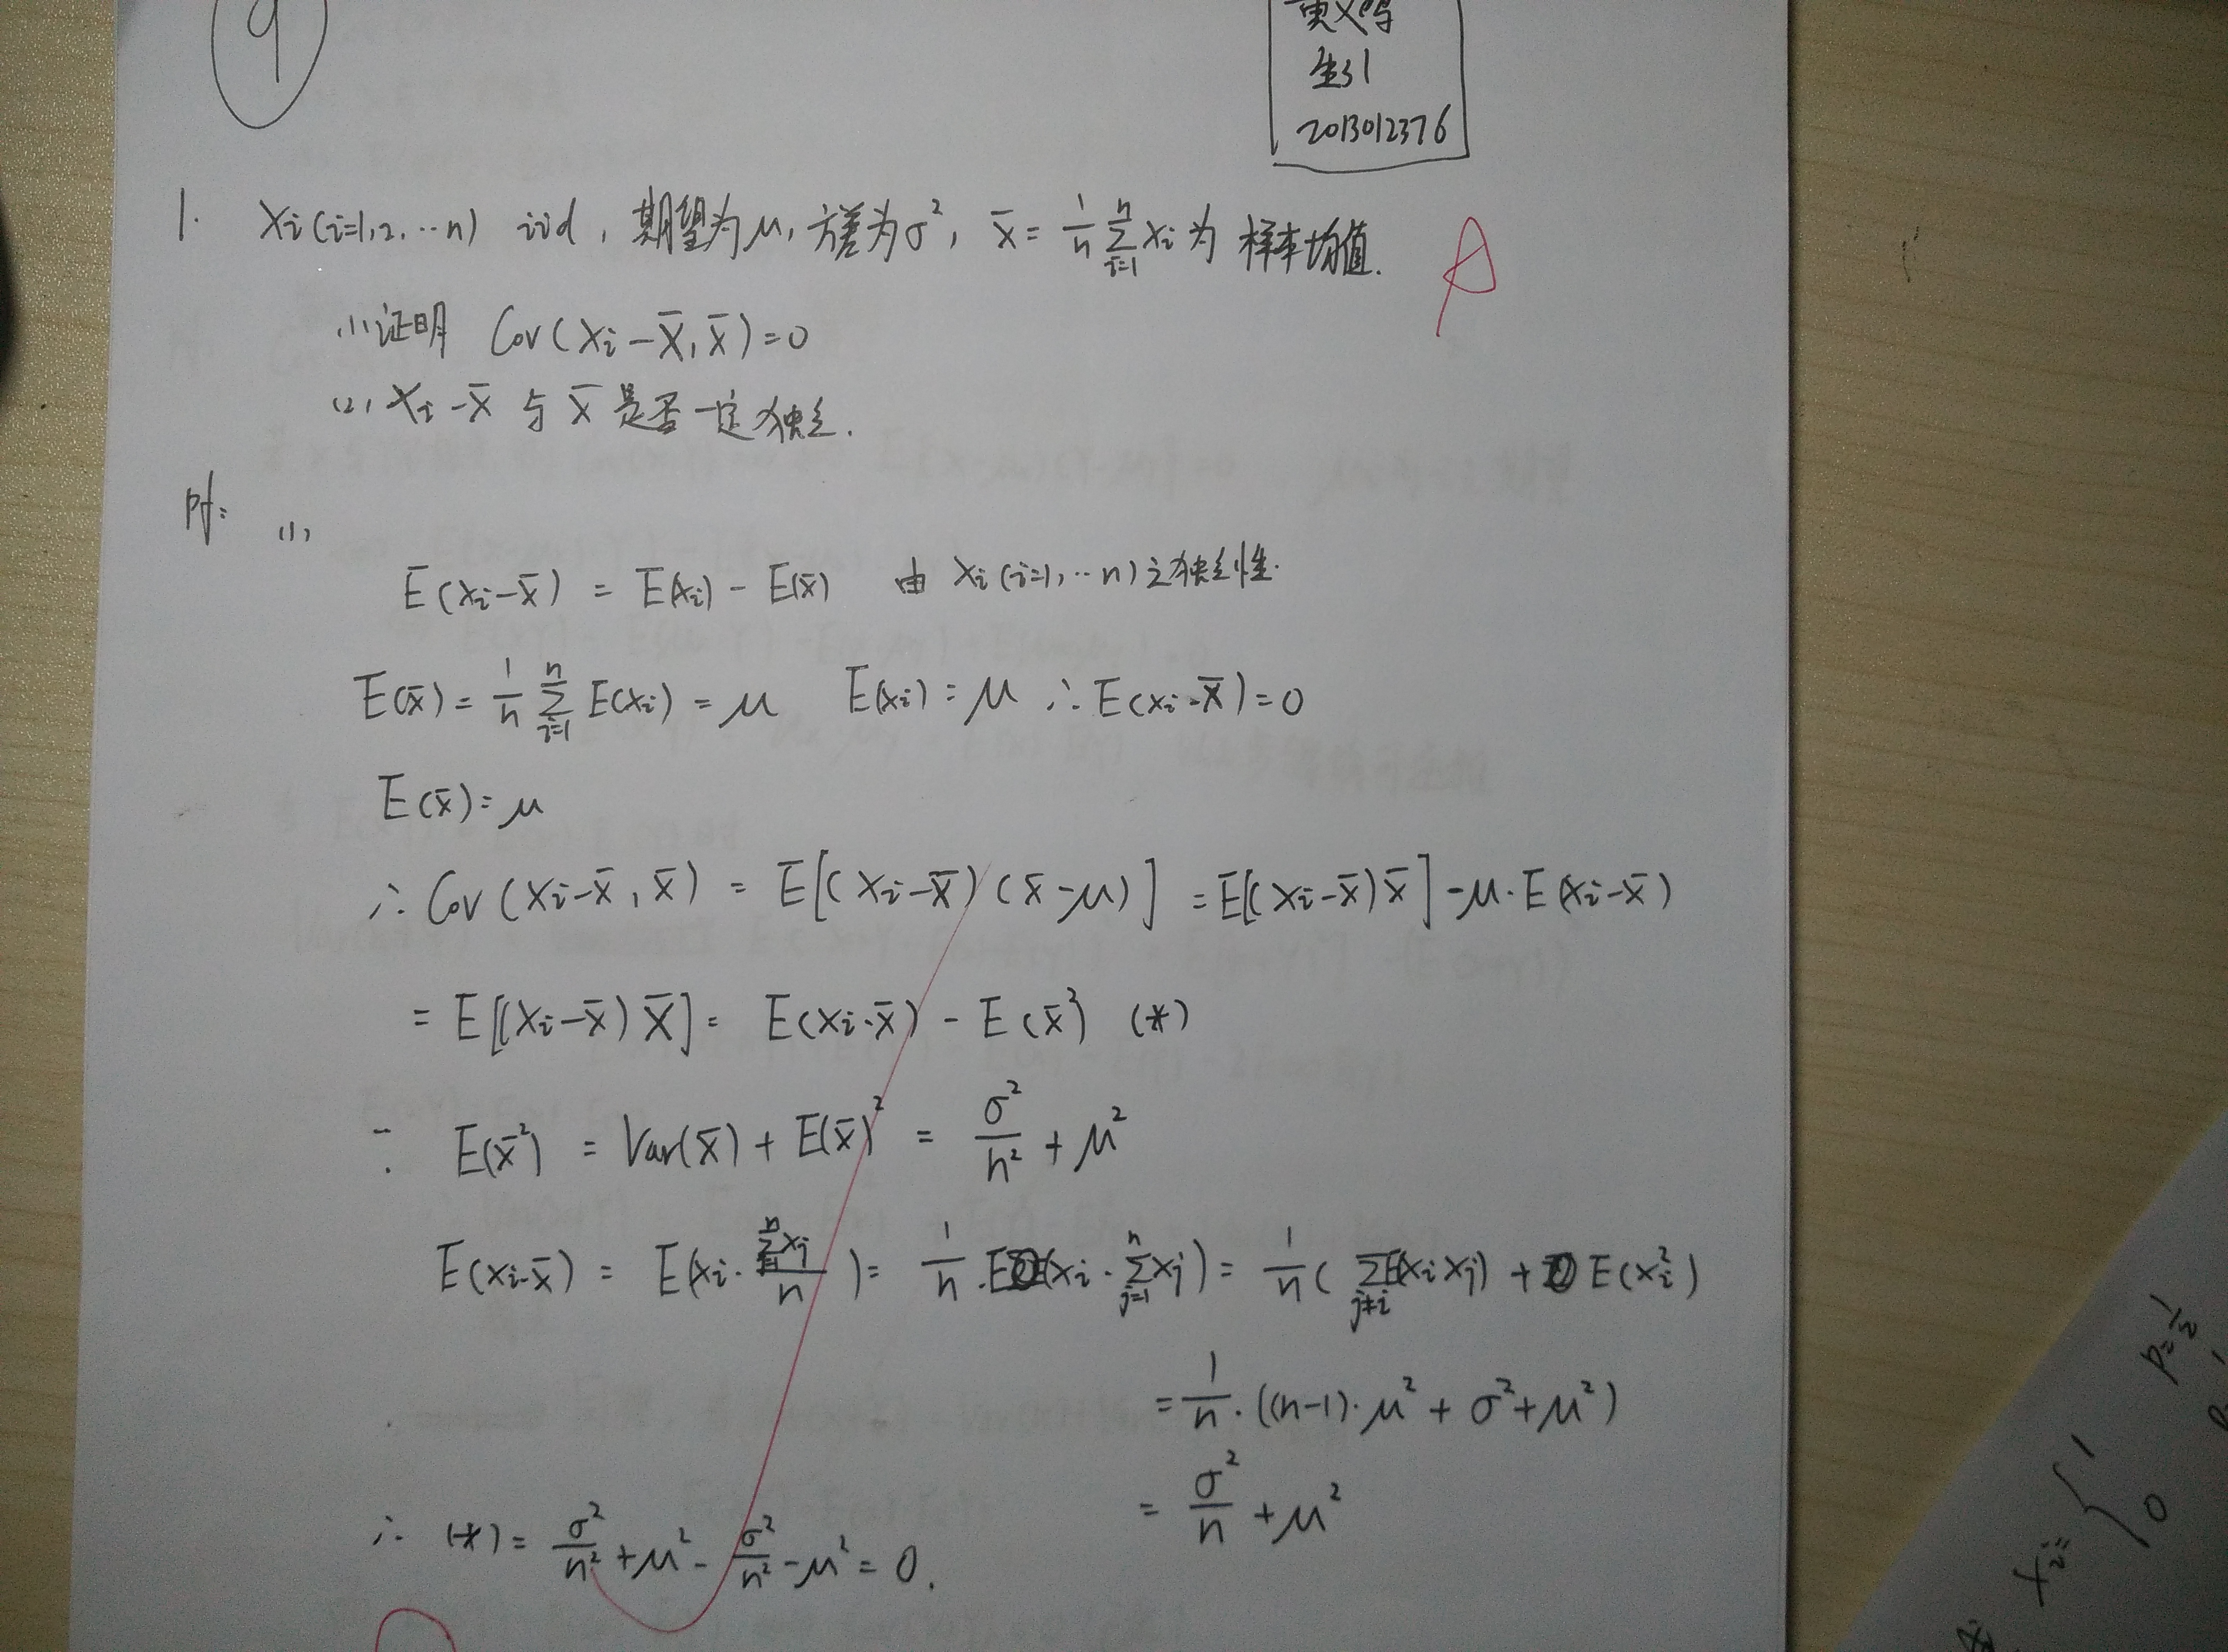 9
生31
2013012376
1. Xi(i=1,2,…n) iid, 期望为μ, 方差为σ², X̄ = 1/n ∑_{i=1}^{n} Xi 为 样本均值.
A
(1) 证明 Cov(Xi-X̄, X̄)=0
(2) Xi-X̄ 与 X̄ 是否一定独立.
Pf: (1)
E(Xi-X̄) = E(Xi) - E(X̄) 由 Xi(i=1,…n)之独立性.
E(X̄) = 1/n ∑_{i=1}^{n} E(Xi) = μ E(Xi) = μ ∴ E(Xi-X̄)=0
E(X̄)=μ
∴ Cov(Xi-X̄, X̄) = E[(Xi-X̄)(X̄-μ)] = E[(Xi-X̄)X̄] - μ·E(Xi-X̄)
= E[(Xi-X̄)X̄] = E(Xi·X̄) - E(X̄²) (*)
∵ E(X̄²) = Var(X̄) + E(X̄)² = σ²/n² + μ²
E(Xi·X̄) = E(Xi · ∑_{j=1}^{n} Xj / n) = 1/n · E(Xi · ∑_{j=1}^{n} Xj) = 1/n (∑_{j≠i} E(XiXj) + E(Xi²)
= 1/n · ((n-1)·μ² + σ² + μ²)
= σ²/n + μ²
∴ (*) = σ²/n² + μ² - σ²/n² - μ² = 0.
Xi= { 1 P=1/2
0